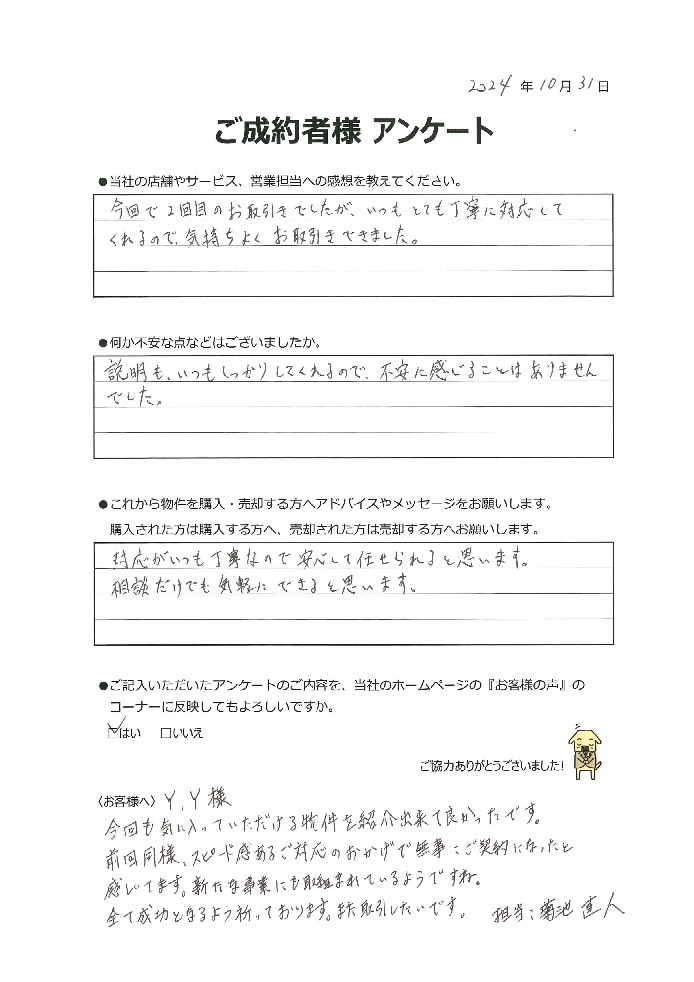 2024年10月31日
ご成約者様 アンケート
●当社の店舗やサービス、営業担当への感想を教えてください。
今回で2回目のお取引きでしたが、いつもとても丁寧に対応して
くれるので、気持ちよくお取引きできました。
●何か不安な点などはございましたか。
説明も、いつもしっかりしてくれるので、不安に感じることはありません
でした。
●これから物件を購入・売却する方へアドバイスやメッセージをお願いします。
購入された方は購入する方へ、売却された方は売却する方へお願いします。
対応がいつも丁寧なので安心して任せられると思います。
相談だけでも気軽にできると思います。
●ご記入いただいたアンケートのご内容を、当社のホームページの『お客様の声』の
コーナーに反映してもよろしいですか。
☑はい □いいえ
ご協力ありがとうございました!
〈お客様へ〉Y.Y様
今回も気に入っていただける物件を紹介出来て良かったです。
前回同様、スピード感あるご対応のおかげで無事にご契約になったと
感じてます。新たな事業にも取組まれているようですね。
全て成功となるよう祈っております。また取引したいです。 担当:菊池直人